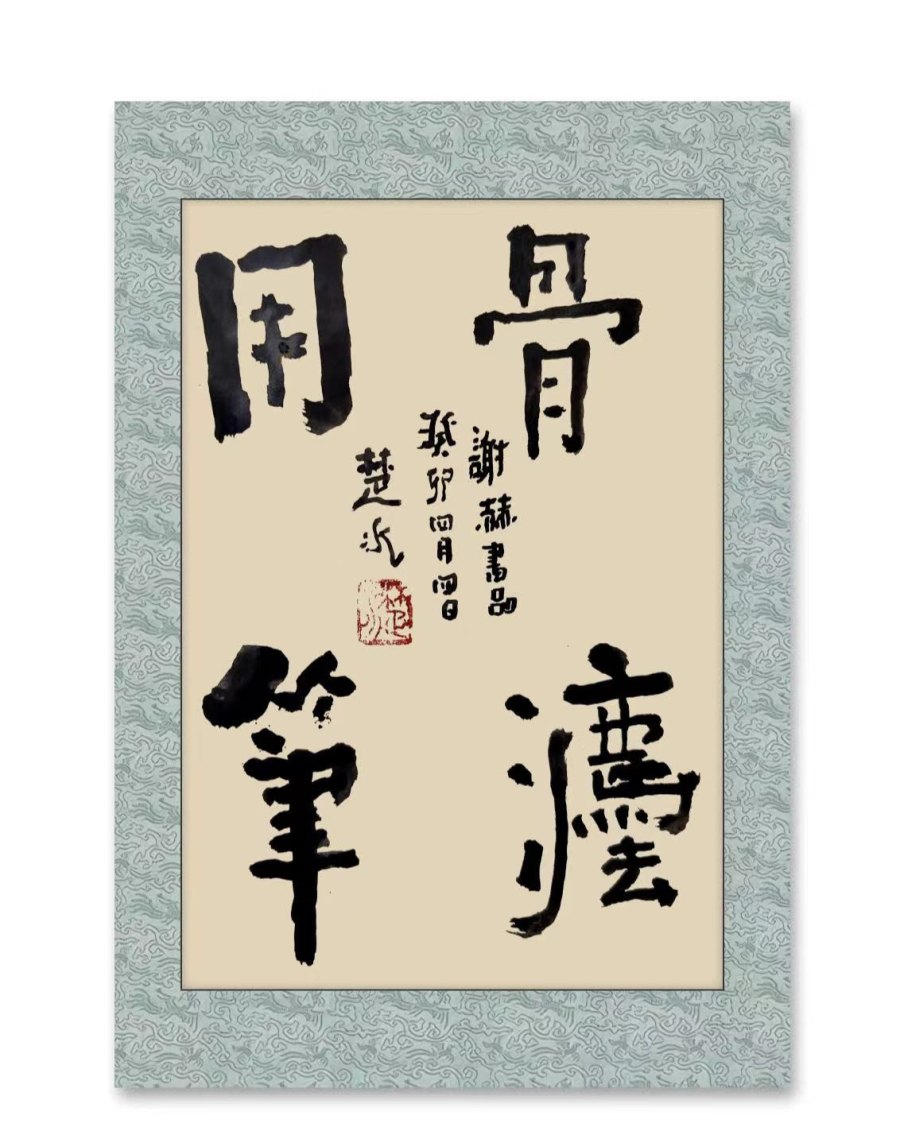 骨灋
用筆
謝赫畫品
癸卯四月四日
楚水